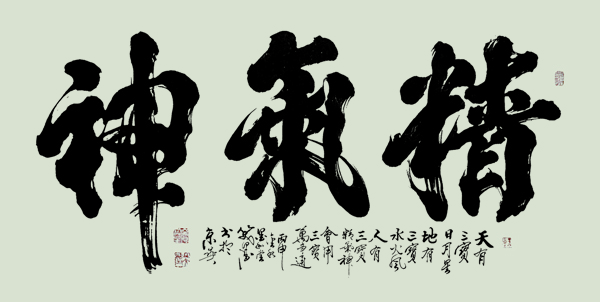 精氣神
天有
三寶
日月星
地有
三寶
水火風
人有
三寶
精氣神
會用
三寶
萬事通
丙申
書於
京華